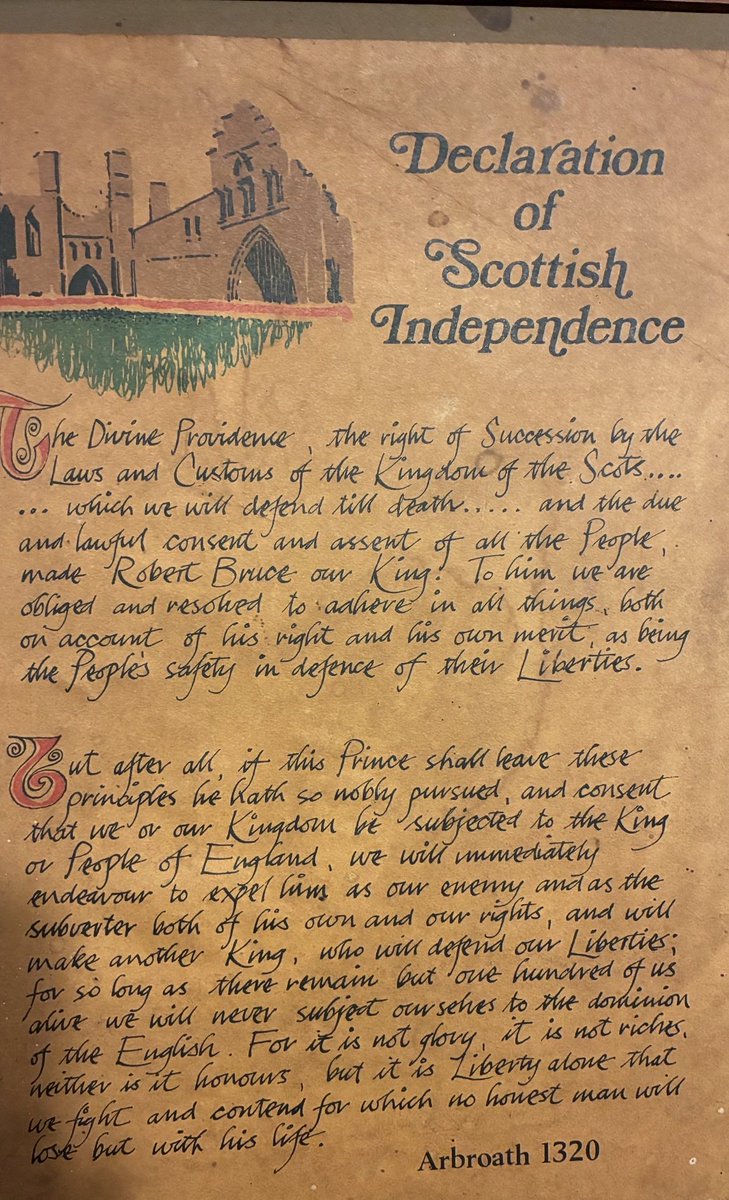 Declaration
of
Scottish
Independence
The Divine Providence, the right of Succession by the
Laws and Customs of the Kingdom of the Scots....
... which we will defend till death..... and the due
and lawful consent and assent of all the People,
made Robert Bruce our King! To him we are
obliged and resolved to adhere in all things, both
on account of his right and his own merit, as being
the People's safety in defence of their Liberties.
But after all, if this Prince shall leave these
principles he hath so nobly pursued, and consent
that we or our Kingdom be subjected to the King
or People of England, we will immediately
endeavour to expel him as our enemy and as the
subverter both of his own and our rights, and will
make another King, who will defend our Liberties;
for so long as there remain but one hundred of us
alive we will never subject ourselves to the dominion
of the English. For it is not glory, it is not riches,
neither is it honours, but it is Liberty alone that
we fight and contend for which no honest man will
lose but with his life.
Arbroath 1320